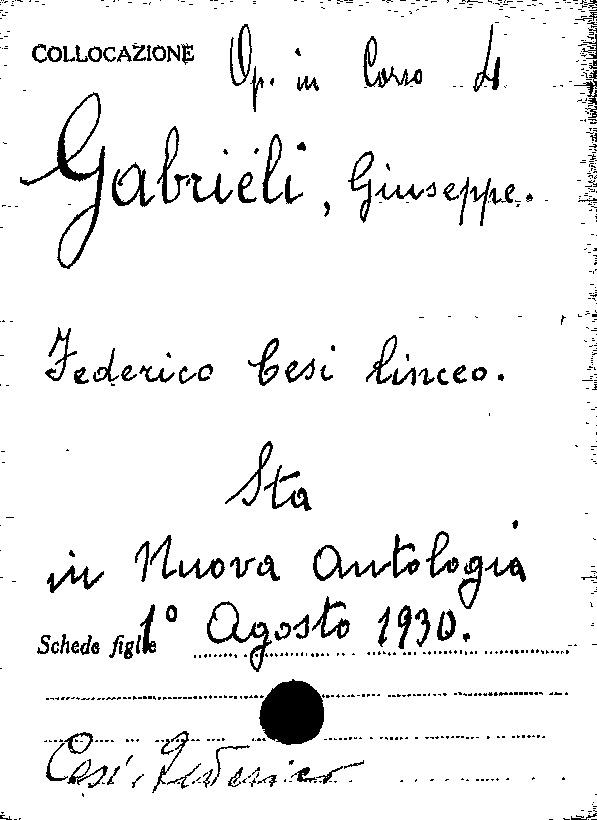 COLLOCAZIONE Op. in Corso 41
Gabrieli, Giuseppe.
Federico Cesi linceo.
Sta
in Nuova Antologia
1° Agosto 1930.
Schede figlie
Cesi, Federico